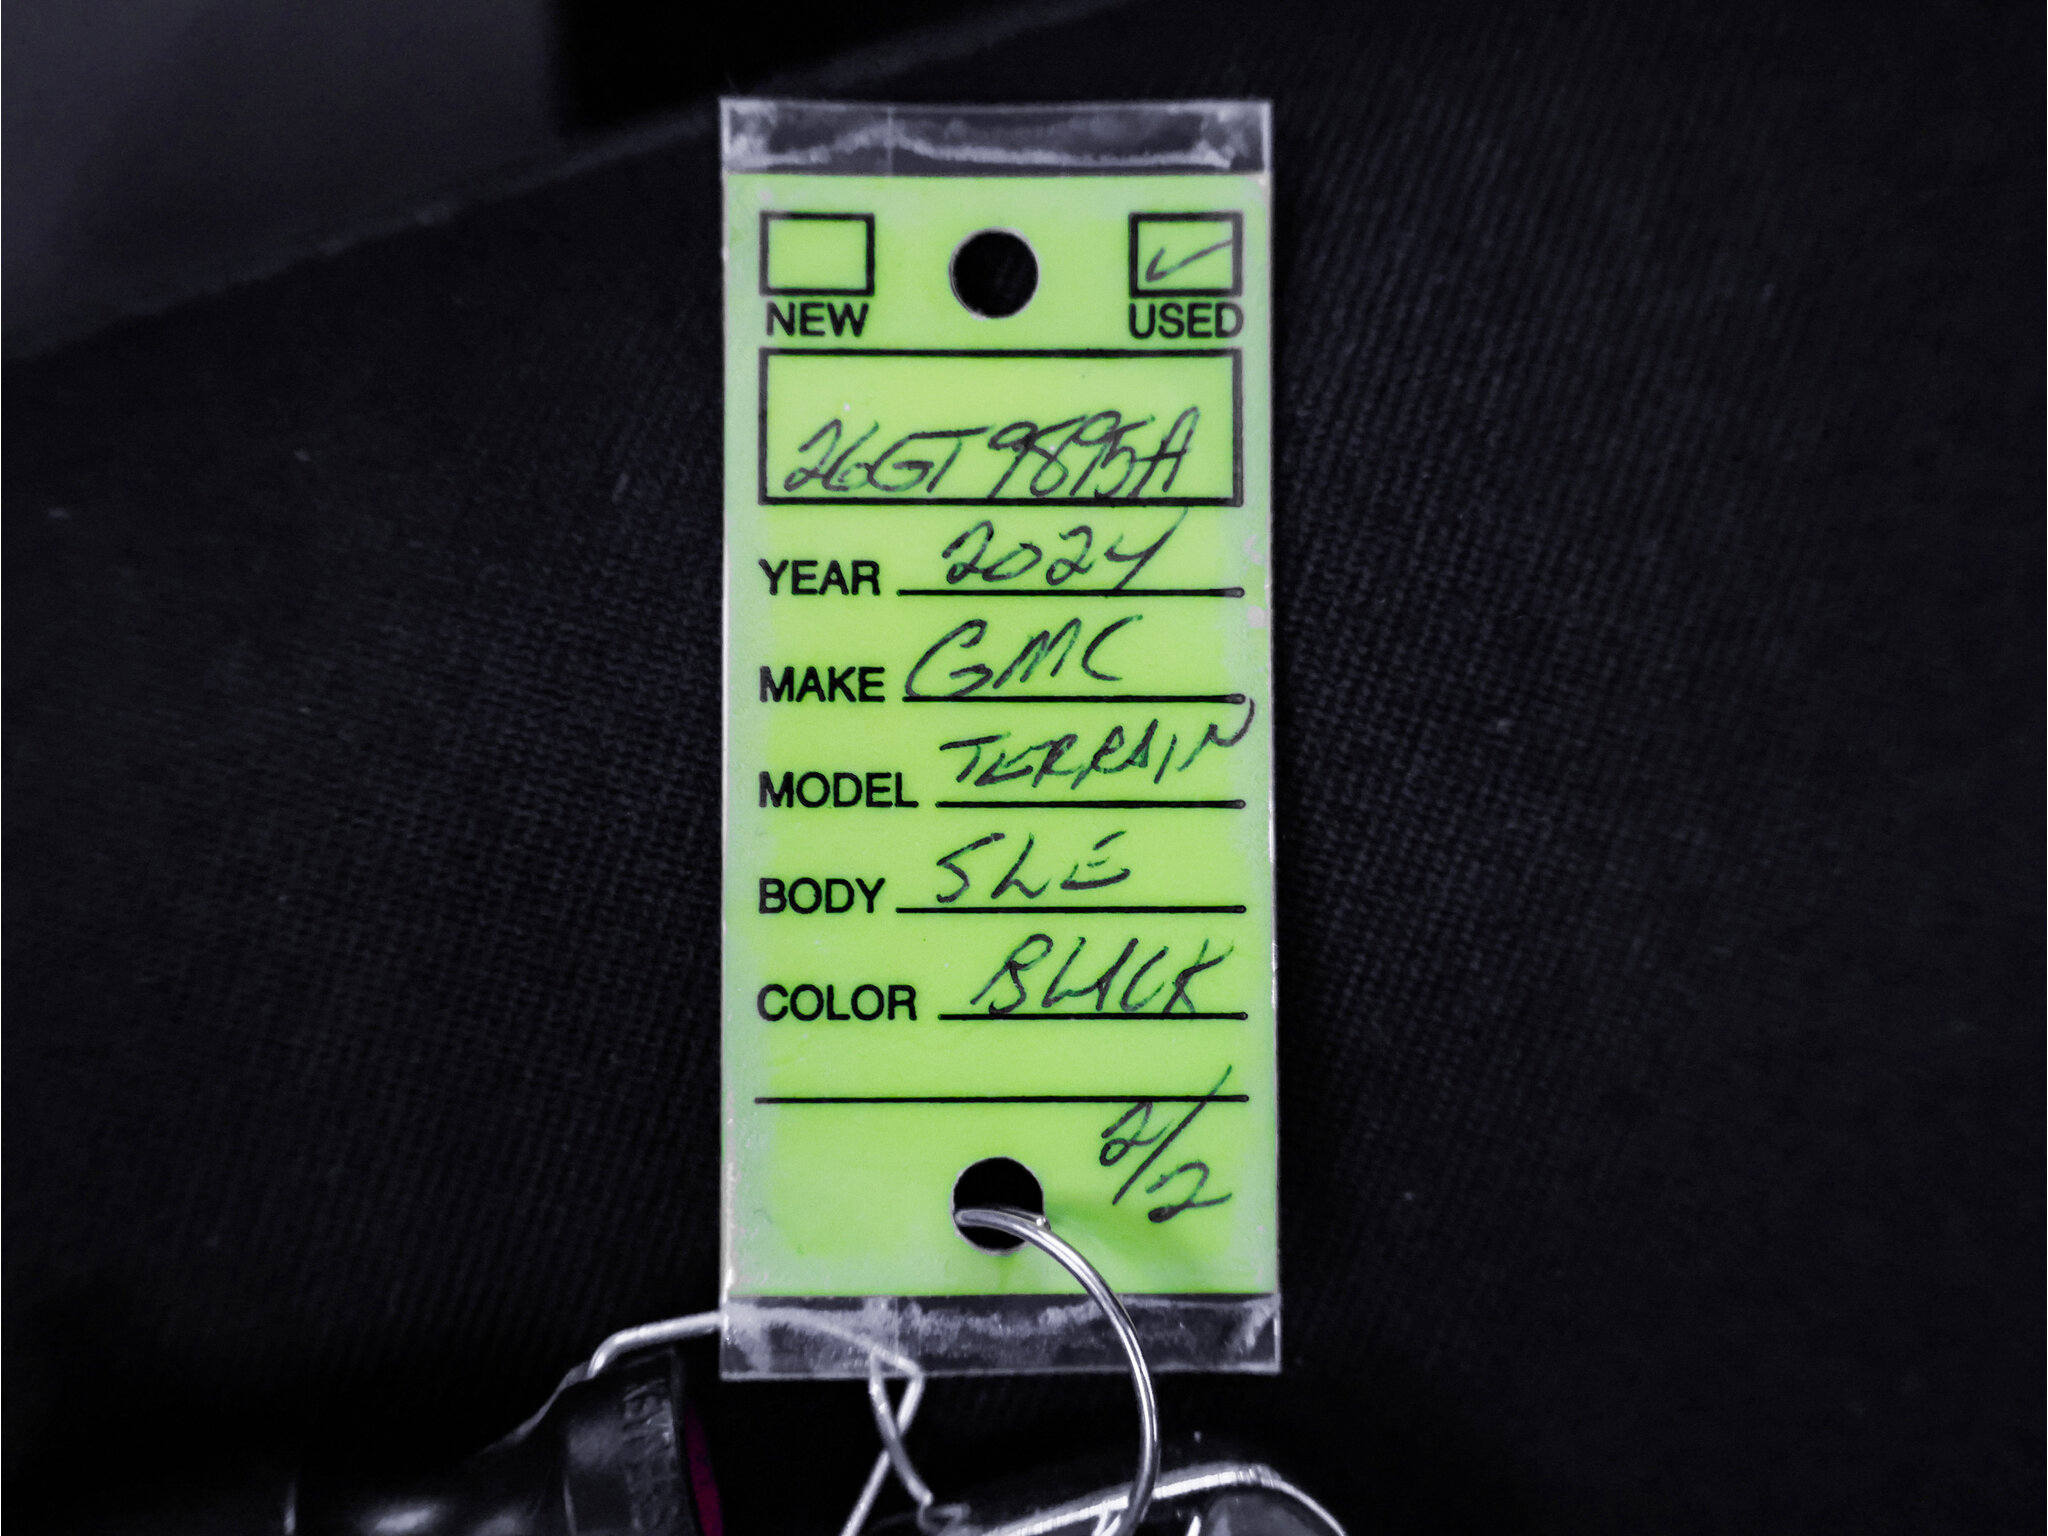 NEW USED
26GT9895A
YEAR 2024
MAKE GMC
MODEL TERRAIN
BODY SLE
COLOR BLACK
2/2